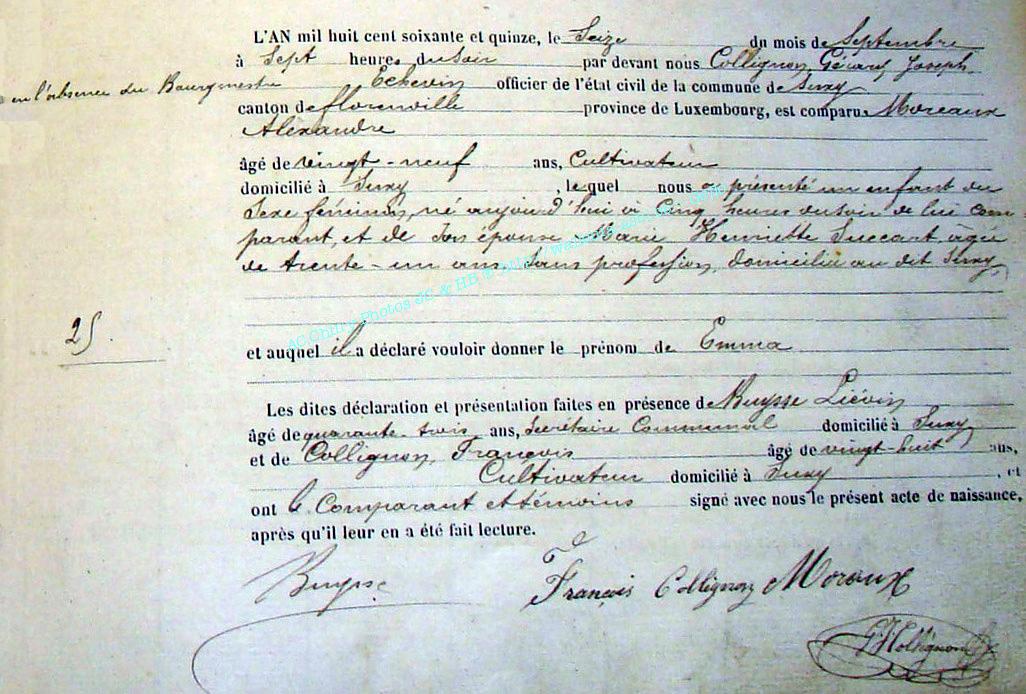 L'AN mil huit cent soixante et quinze, le Seize du mois de Septembre
à Sept heures du Soir par devant nous Collignon, Gérard, Joseph,
en l'absence du Bourgmestre Echevin officier de l'état civil de la commune de Suxy
canton de florenville province de Luxembourg, est comparu Moreaux
Alexandre
âgé de vingt-neuf ans, Cultivateur
domicilié à Suxy, lequel nous a présenté un enfant du
Sexe féminin, né aujourd'hui à Cinq heures du soir de lui com
parant, et de Son épouse Marie Henriette Succart, agée
de trente-un ans, Sans profession, domiciliée au dit Suxy,
25.
et auquel il a déclaré vouloir donner le prénom de Emma
Les dites déclaration et présentation faites en présence de Buysse Liévin
âgé de quarante-trois ans, Secrétaire Communal domicilié à Suxy,
et de Collignon, François âgé de vingt-huit ans,
Cultivateur domicilié à Suxy, et
ont le Comparant et témoins signé avec nous le présent acte de naissance,
après qu'il leur en a été fait lecture.
Buysse François Collignon Moraux
G Collignon